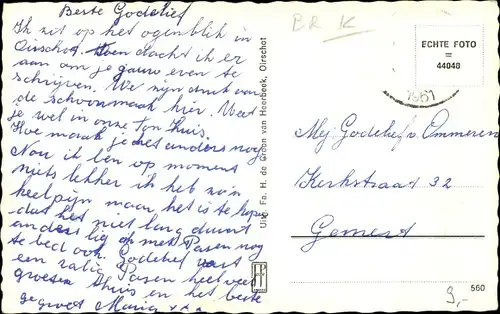 Beste Godelief
Ik zit op het ogenblik in
Oirschot. Toen dacht ik er
aan om je gauw even te
schrijven. We zijn druk aan
de schoonmaak hier. Weet
je wel in onze Ton thuis.
Hoe maak je het anders nog
Nou ik ben op moment
niets lekker ik heb zo'n
keelpijn maar het is te hopen
dat het niet lang duurt
anders lig ik met Pasen nog
te bed ook. Godelief vast
een zalig Pasen heel veel
groeten thuis en het beste
gegroet Maria xxx
Uitg. Fa. H. de Croon van Heerbeek, Oirschot
BR K
ECHTE FOTO
=
44048
1961
Mej Godelief v. Ommeren
Kerkstraat 32
Gemert
560
9,-